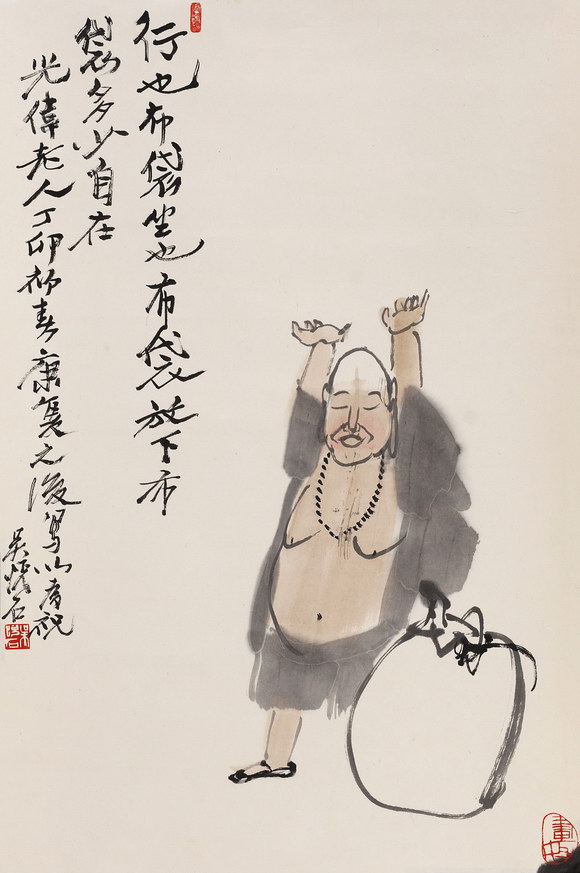 行也布袋坐也布袋放下布
袋多少自在
光偉老人丁卯初春康复之後写以者祝
吳懷石